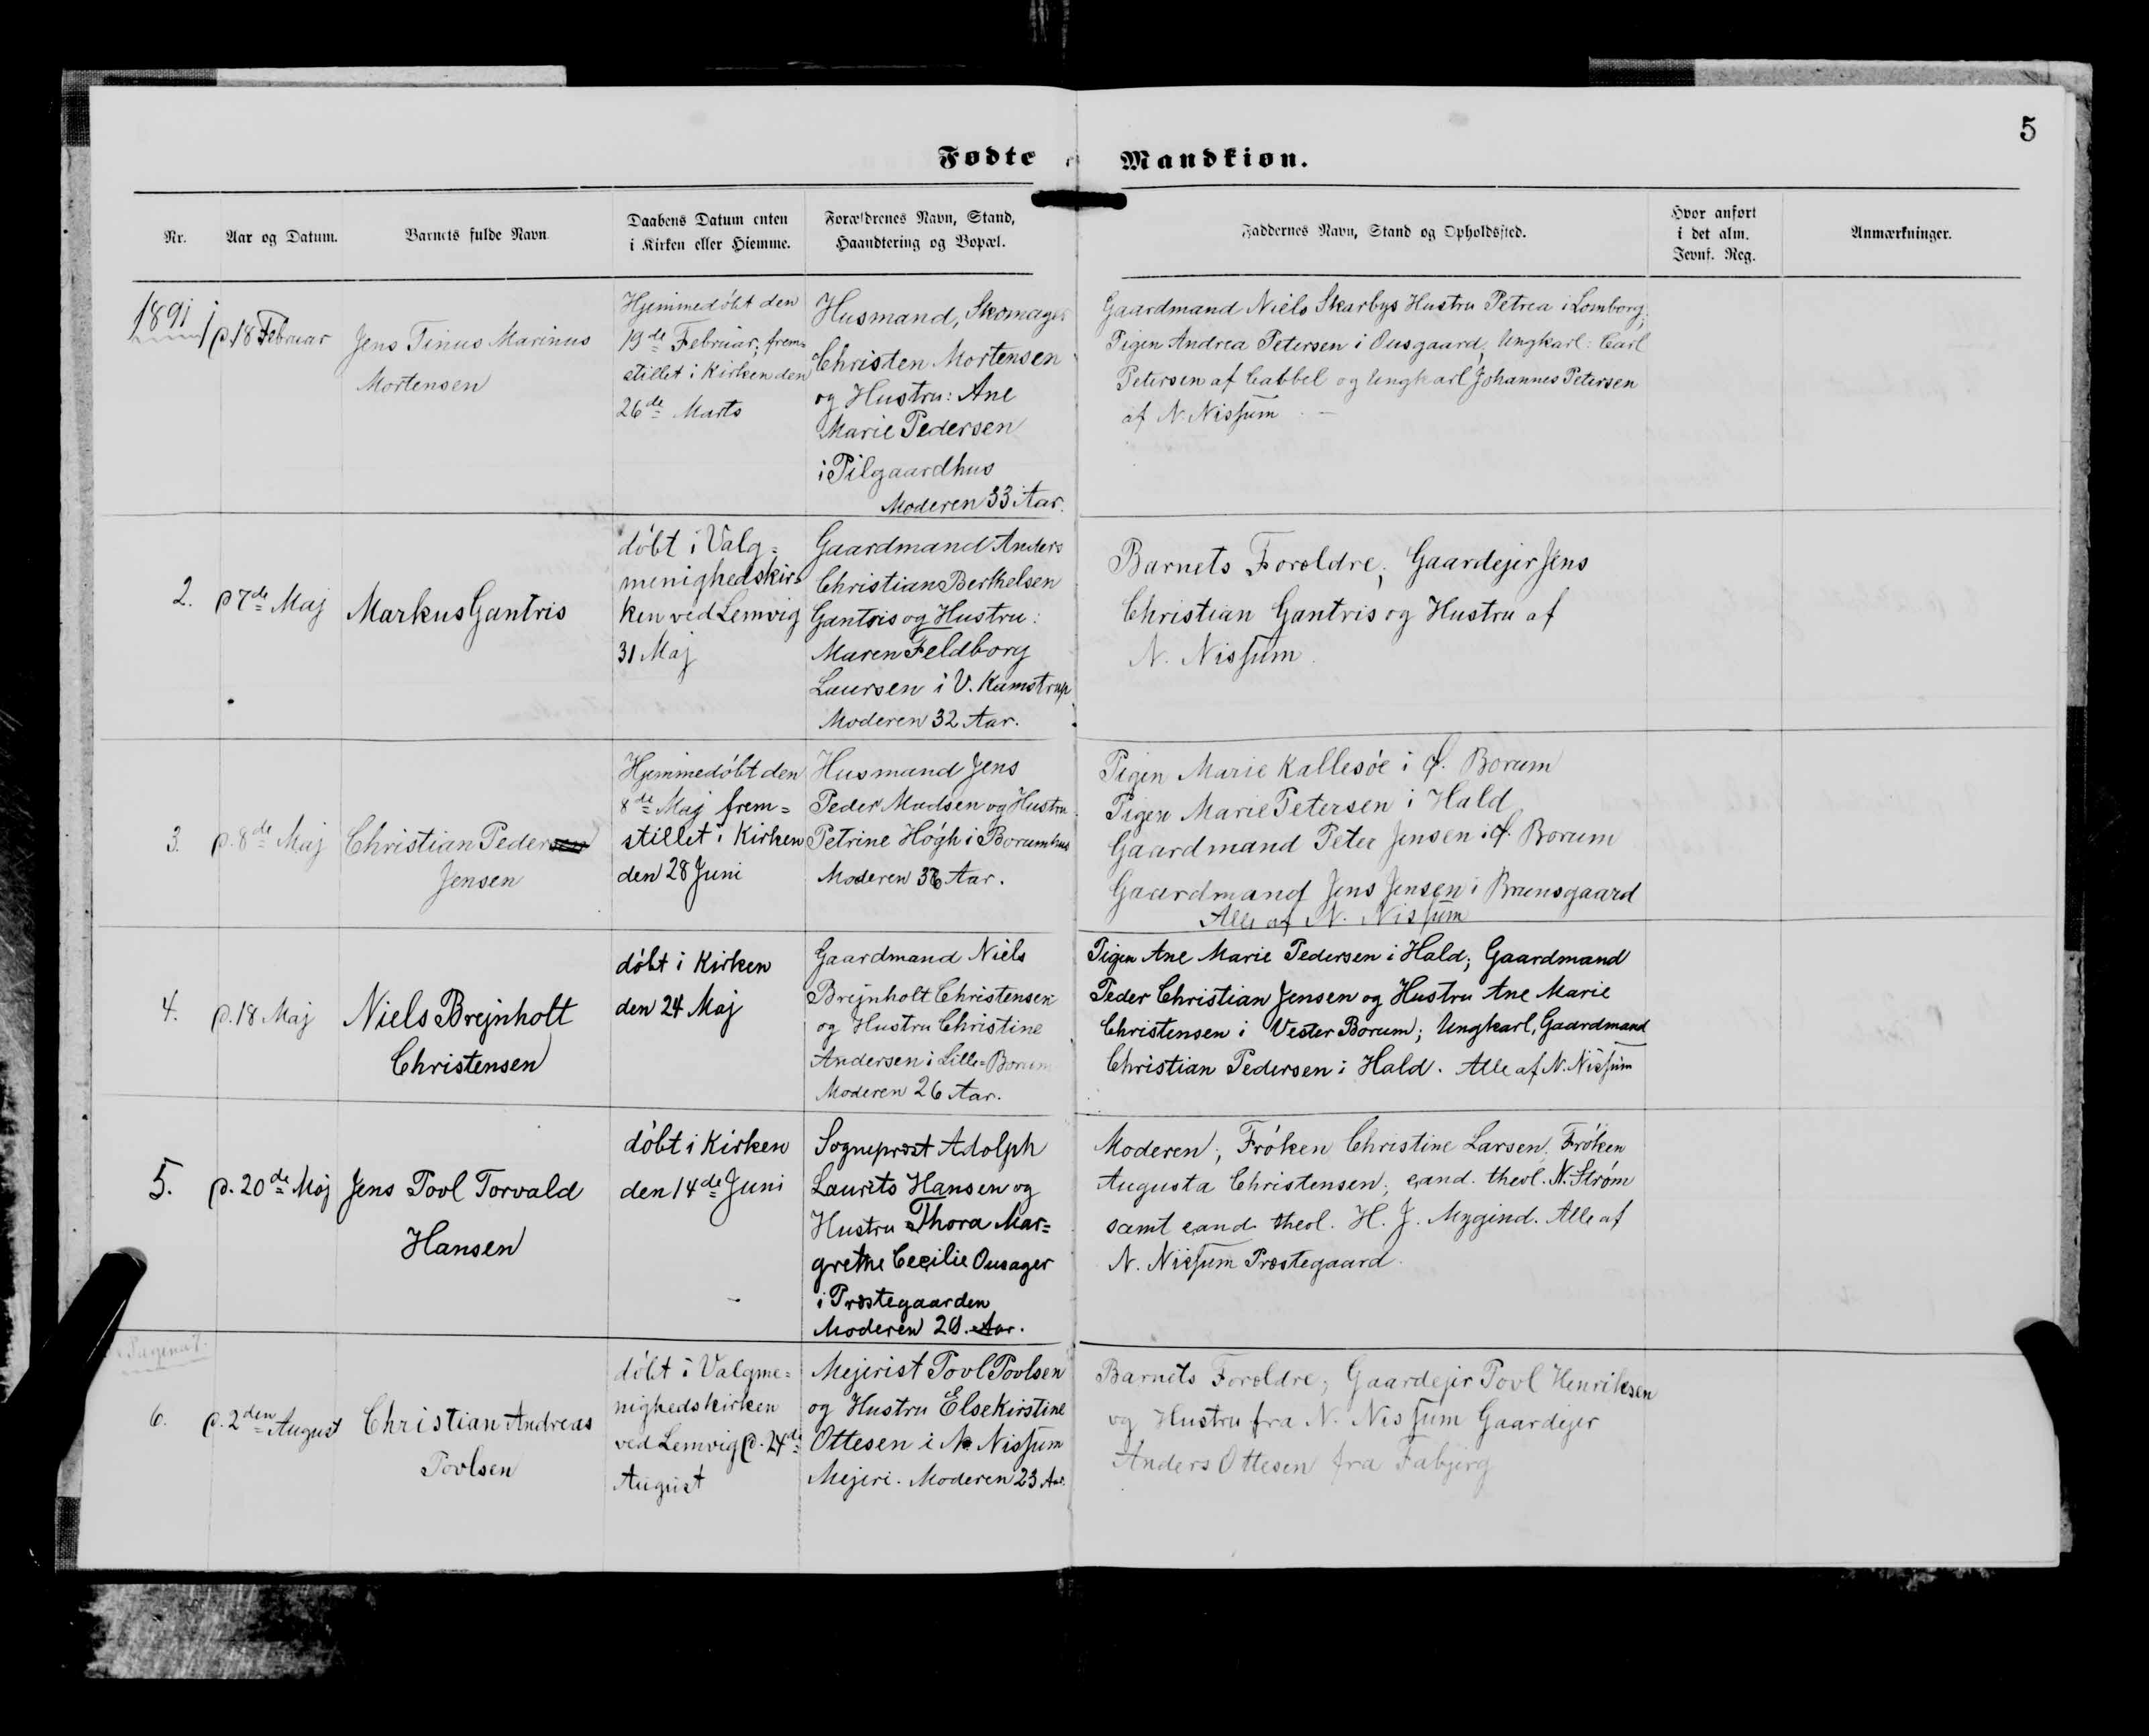 5
Fødte Mandkiøn.
Nr.
Aar og Datum.
Barnets fulde Navn
Daabens Datum enten
i Kirken eller Hiemme.
Forældrenes Navn, Stand,
Haandtering og Bopæl.
Faddernes Navn, Stand og Opholdssted.
Hvor anført
i det alm.
Jevnf. Reg.
Anmærkninger.
1891
1
p. 18 Februar
Jens Tinus Marinus
Mortensen
Hjemmedøbt den
19de Februar; frem-
stillet i Kirken den
26de Marts
Husmand, Skomager
Christen Mortensen
og Hustru: Ane
Marie Pedersen
i Pilgaardhus
Moderen 33 Aar.
Gaardmand Niels Skarbys Hustru Petrea i Lomborg;
Pigen Andrea Petersen i Ousgaard; Ungkarl: Carl
Petersen af Cabbel og Ungkarl Johannes Petersen
af N. Nissum
2.
p 7de Maj
Markus Gantris
døbt i Valg=
menighedskir=
ken ved Lemvig
31 Maj
Gaardmand Anders
Christian Berthelsen
Gantris og Hustru:
Maren Feldborg
Laursen i V. Kamstrup
Moderen 32 Aar.
Barnets Forældre; Gaardejer Jens
Christian Gantris og Hustru af
N. Nissum
3.
p. 8de Maj
Christian Peder
Jensen
Hjemmedøbt den
8de Maj frem=
stillet i Kirken
den 28 Juni
Husmand Jens
Peder Madsen og Hustru
Petrine Høgh i Borumhus
Moderen 36 Aar.
Pigen Marie Kallesøe i Ø. Borum
Pigen Marie Petersen i Hald
Gaardmand Peter Jensen i Ø. Borum
Gaardmand Jens Jensen i
Alle af N. Nissum
4.
p. 18 Maj
Niels Brejnholt
Christensen
døbt i Kirken
den 24 Maj
Gaardmand Niels
Brejnholt Christensen
og Hustru Christine
Andersen i Lille=Borum
Moderen 26 Aar.
Pigen Ane Marie Pedersen i Hald; Gaardmand
Peder Christian Jensen og Hustru Ane Marie
Christensen i Vester Borum; Ungkarl, Gaardmand
Christian Pedersen i Hald. Alle af N. Nissum
5.
p. 20de Maj
Jens Povl Torvald
Hansen
døbt i Kirken
den 14de Juni
Sognepræst Adolph
Laurits Hansen og
Hustru Thora Mar=
grethe Cecilie Ousager
i Præstegaarden
Moderen 29. Aar.
Moderen; Frøken Christine Larsen, Frøken
Augusta Christensen; cand. theol. N. Strøm
samt cand. theol. H. J. Mygind. Alle af
N. Nissum Præstegaard.
6.
p. 2den August
Christian Andreas
Povlsen
døbt i Valgme=
nighedskirken
ved Lemvig p. 24de
August
Mejerist Povl Povlsen
og Hustru Else Kirstine
Ottesen i N. Nissum
Mejeri. Moderen 23 Aar.
Barnets Forældre; Gaardejer Povl Henriksen
og Hustru fra N. Nissum Gaardejer
Anders Ottesen fra Fabjerg